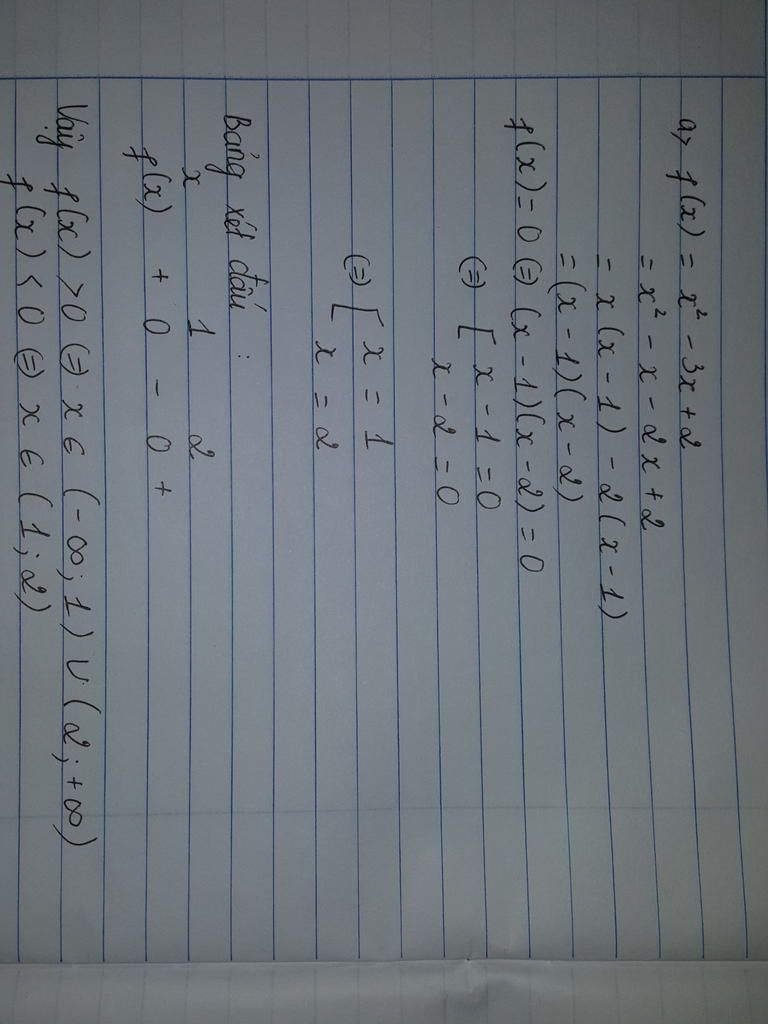 a, f(x) = x² - 3x + 2
= x² - x - 2x + 2
= x(x - 1) - 2(x - 1)
= (x - 1)(x - 2)
f(x) = 0 (=) (x - 1)(x - 2) = 0
(=) [ x - 1 = 0
x - 2 = 0
(=) [ x = 1
x = 2
Bảng xét dấu :
x 1 2
f(x) + 0 - 0 +
Vậy f(x) > 0 (=) x ∈ (-∞; 1) ∪ (2; +∞)
f(x) < 0 (=) x ∈ (1; 2)